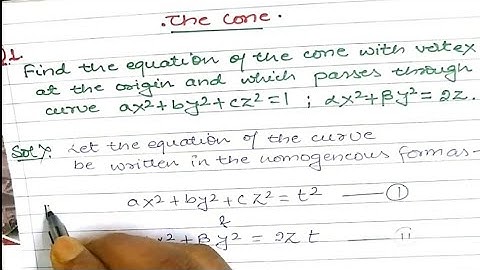 .The Cone.
Q.1. Find the equation of the cone with vertex
at the origin and which passes through
curve ax²+by²+cz²=1 ; αx²+βy²=2z.
Solⁿ: Let the equation of the curve
be written in the homogeneous form as-
ax²+by²+cz²=t² —— ①
x²+βy²=2zt —— ⑪